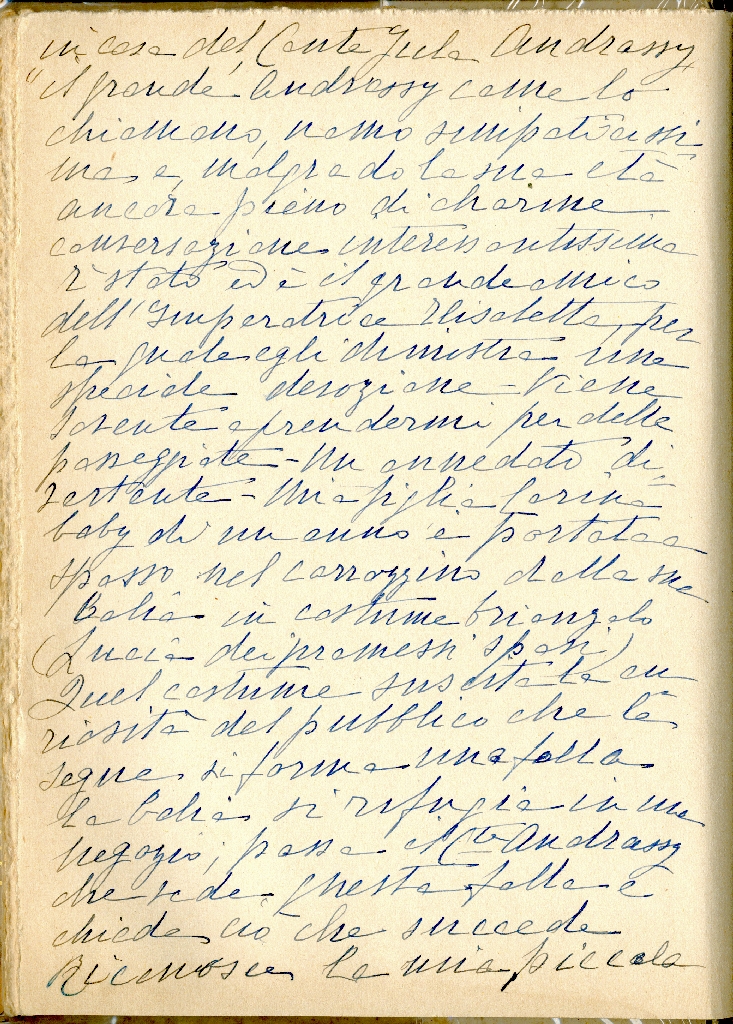 in casa del Conte Jula Andrassy
"il grande Andrassy come lo
chiamano, uomo simpaticissi
mo e, malgrado la sua età
ancora pieno di charme
conversazione interessantissima
è stato ed è il grande amico
dell'Imperatrice Elisabetta, per
la quale egli dimostra una
speciale devozione - Viene
sovente a prendermi per delle
passeggiate - Un anneddoto di-
vertente - Mia figlia Carina
baby di un anno è portata a
spasso nel carrozzino dalla sua
balia in costume brianzolo
(Lucia dei promessi sposi)
Quel costume suscita la cu
riosità del pubblico che la
segue, si forma una folla
la balia si rifugia in un
negozio; passa il Cte Andrassy
che vede questa folla e
chiede ciò che succede
Riconosce la mia piccola